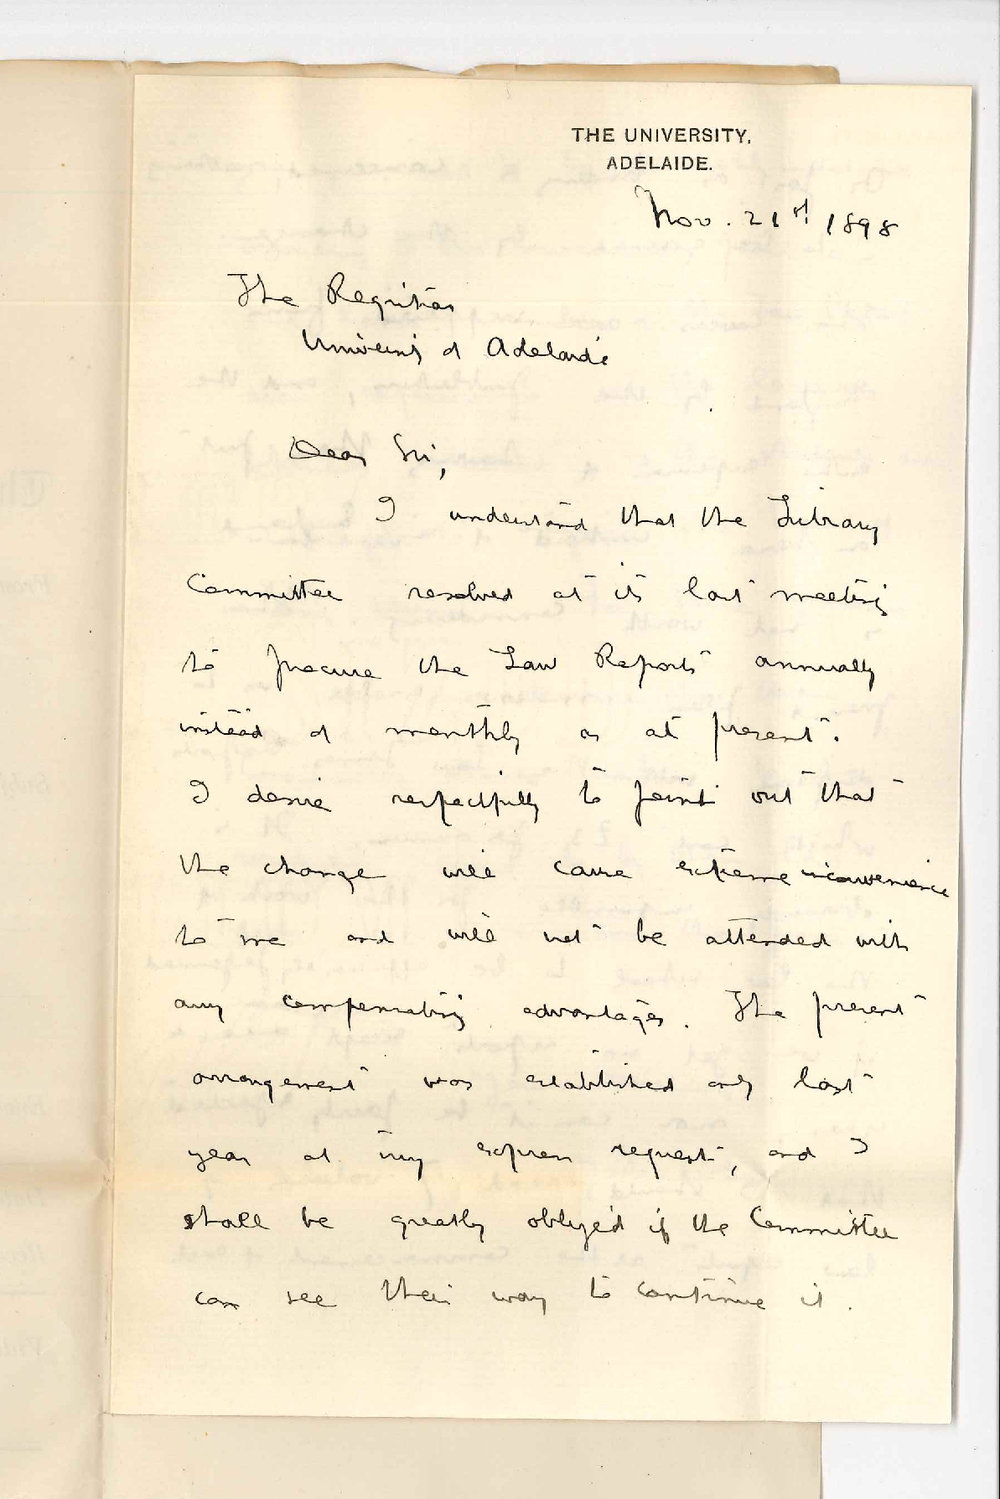 THE UNIVERSITY,
ADELAIDE.
Nov. 21st 1898
The Registrar
University of Adelaide
Dear Sir,
I understand that the Library
Committee resolved at its last meeting
to procure the Law Reports annually
instead of monthly as at present.
I desire respectfully to point out that
the change will cause extreme inconvenience
to me and will not be attended with
any compensating advantages. The present
arrangement was established only last
year at my express request, and I
shall be greatly obliged if the Committee
can see their way to continue it.